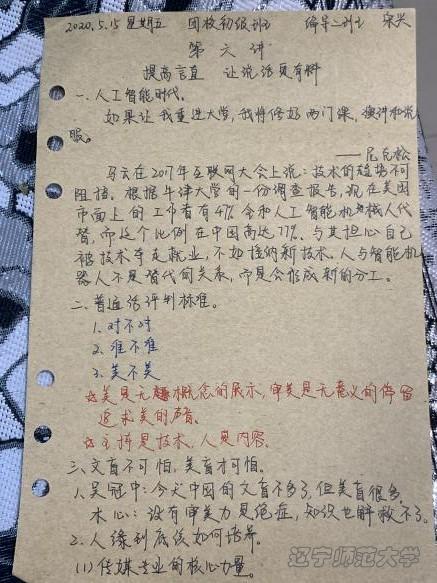 2020.5.15 星期五 团校初级班 编导二班 宋兴
第六讲
提高言值 让说话更有料
一、人工智能时代。
如果让我重进大学,我将修好两门课,演讲和说
服。
——尼克松
马云在2017年互联网大会上说:技术的趋势不可
阻挡。根据牛津大学的一份调查报告,现在美国
市面上的工作者有47%会和人工智能机器人代
替,而这个比例在中国高达77%。与其担心自己
被技术夺走就业,不如拥抱新技术。人与智能机
器人不是替代的关系,而是会形成新的分工。
二、普通话评判标准。
1.对不对
2.准不准
3.美不美
☆美是无概念的展示,审美是无意义的停留
追求美的声音。
☆主持是技术,人是内容。
三、文盲不可怕,美盲才可怕。
1.吴冠中:今天中国的文盲不多了,但美盲很多。
木心:没有审美力是绝症,知识也解救不了。
2.人缘到底该如何培养。
(1)传媒专业的核心力量。
辽宁师范大学